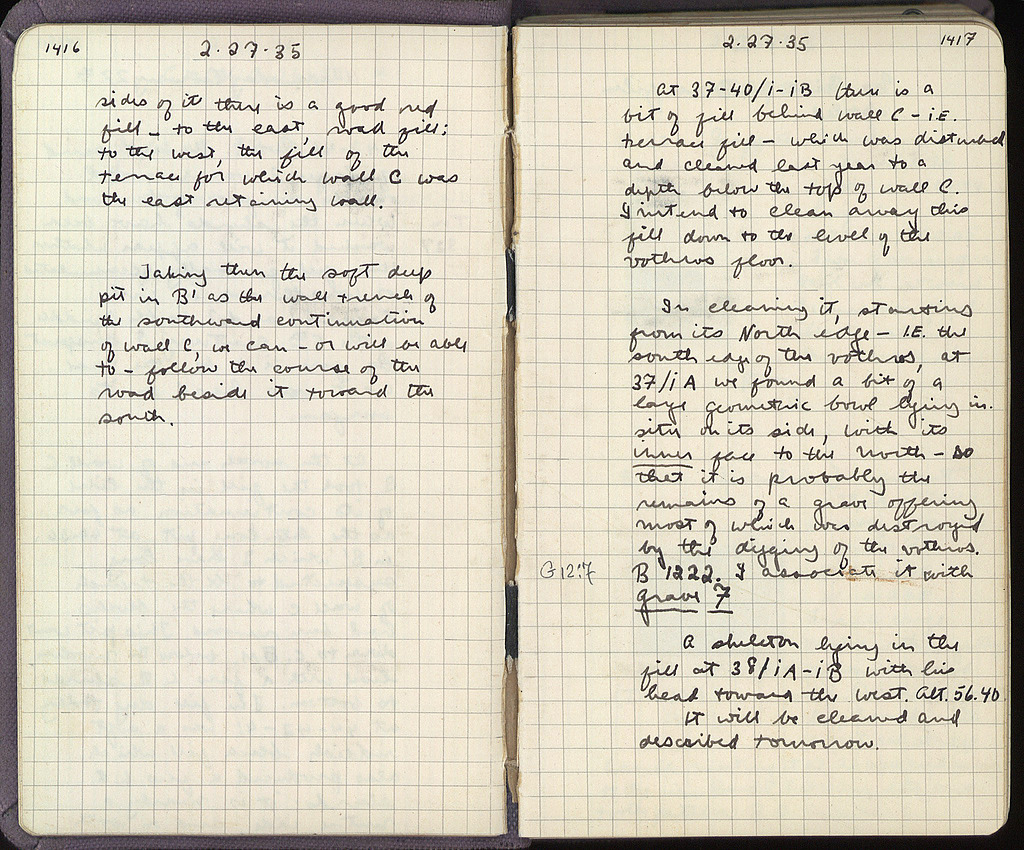 1416
2·27·35
sides of it there is a good red
fill - to the east, road fill:
to the west, the fill of the
terrace for which wall C was
the east retaining wall.
Taking then the soft deep
pit in B' as the wall trench of
the southward continuation
of wall C, we can - or will be able
to - follow the course of the
road beside it toward the
south.
2·27·35
1417
At 37-40/i-iB there is a
bit of fill behind wall C - i.E.
terrace fill - which was disturbed
and cleaned last year to a
depth below the top of wall C.
I intend to clean away this
fill down to the level of the
vothros floor.
In cleaning it, starting
from its North edge - I.E. the
south edge of the vothros, at
37/iA we found a bit of a
large geometric bowl lying in
situ on its side, with its
inner face to the north - so
that it is probably the
remains of a grave offering
most of which was destroyed
by the digging of the vothros.
G12:7
B 1222. I associate it with
grave 7
A skeleton lying in the
fill at 38/iA-iB with his
head toward the west. Alt. 56.40
It will be cleaned and
described tomorrow.